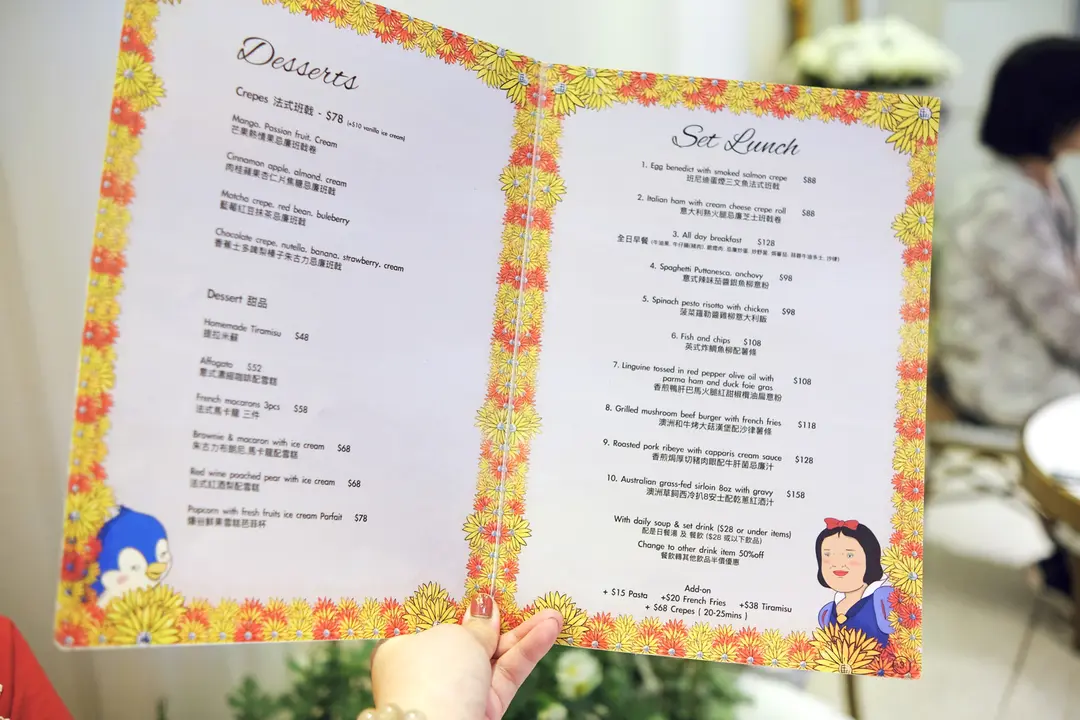 Desserts
Crepes 法式班戟 - $78 (+$10 vanilla ice cream)
Mango, Passion fruit, Cream
芒果熱情果忌廉班戟卷
Cinnamon apple, almond, cream
肉桂蘋果杏仁片焦糖忌廉班戟
Matcha crepe, red bean, buleberry
藍莓紅豆抹茶忌廉班戟
Chocolate crepe, nutella, banana, strawberry, cream
香蕉士多啤梨榛子朱古力忌廉班戟
Dessert 甜品
Homemade Tiramisu $48
提拉米蘇
Affogato $52
意式濃縮咖啡配雪糕
French macarons 3pcs $58
法式馬卡龍 三件
Brownie & macaron with ice cream $68
朱古力布朗尼,馬卡龍配雪糕
Red wine poached pear with ice cream $68
法式紅酒梨配雪糕
Popcorn with fresh fruits ice cream Parfait $78
爆谷鮮果雪糕芭菲杯
Set Lunch
1. Egg benedict with smoked salmon crepe $88
班尼迪蛋煙三文魚法式班戟
2. Italian ham with cream cheese crepe roll $88
意大利熟火腿忌廉芝士班戟卷
3. All day breakfast $128
全日早餐
4. Spaghetti Puttanesca, anchovy $98
意式辣味茄醬銀魚柳意粉
5. Spinach pesto risotto with chicken $98
菠菜羅勒醬雞柳意大利飯
6. Fish and chips $108
英式炸鯛魚柳配薯條
7. Linguine tossed in red pepper olive oil with
parma ham and duck foie gras $108
香煎鴨肝巴馬火腿紅甜椒欖油扁意粉
8. Grilled mushroom beef burger with french fries $118
澳洲和牛烤大菇漢堡配沙律薯條
9. Roasted pork ribeye with capparis cream sauce $128
香煎焗厚切豬肉眼配牛肝菌忌廉汁
10. Australian grass-fed sirloin 8oz with gravy $158
澳洲草飼西冷扒8安士配乾蔥紅酒汁
With daily soup & set drink ($28 or under items)
配是日餐湯 及 餐飲 ($28 或以下飲品)
Change to other drink item 50%off
餐飲轉其他飲品半價優惠
Add-on
+ $15 Pasta +$20 French Fries +$38 Tiramisu
+ $68 Crepes ( 20-25mins )